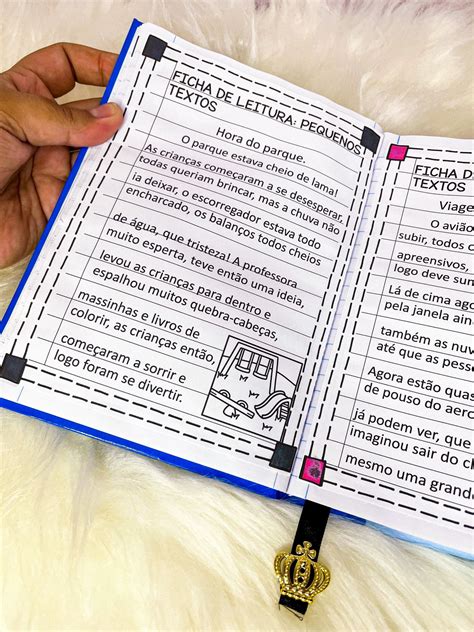 FICHA DE LEITURA: PEQUENOS
TEXTOS
Hora do parque.
O parque estava cheio de lama!
As crianças começaram a se desesperar,
todas queriam brincar, mas a chuva não
ia deixar, o escorregador estava todo
encharcado, os balanços todos cheios
de água, que tristeza! A professora
muito esperta, teve então uma ideia,
levou as crianças para dentro e
espalhou muitos quebra-cabeças,
massinhas e livros de
colorir, as crianças então,
começaram a sorrir e
logo foram se divertir.
FICHA DE
TEXTOS
Viage
O avião
subir, todos
apreensivos,
logo deve sum
Lá de cima ago
pela janela ain
também as nuv
até que as pess
Agora estão quas
de pouso do aero
já podem ver, que
imaginou sair do ch
mesmo uma grand